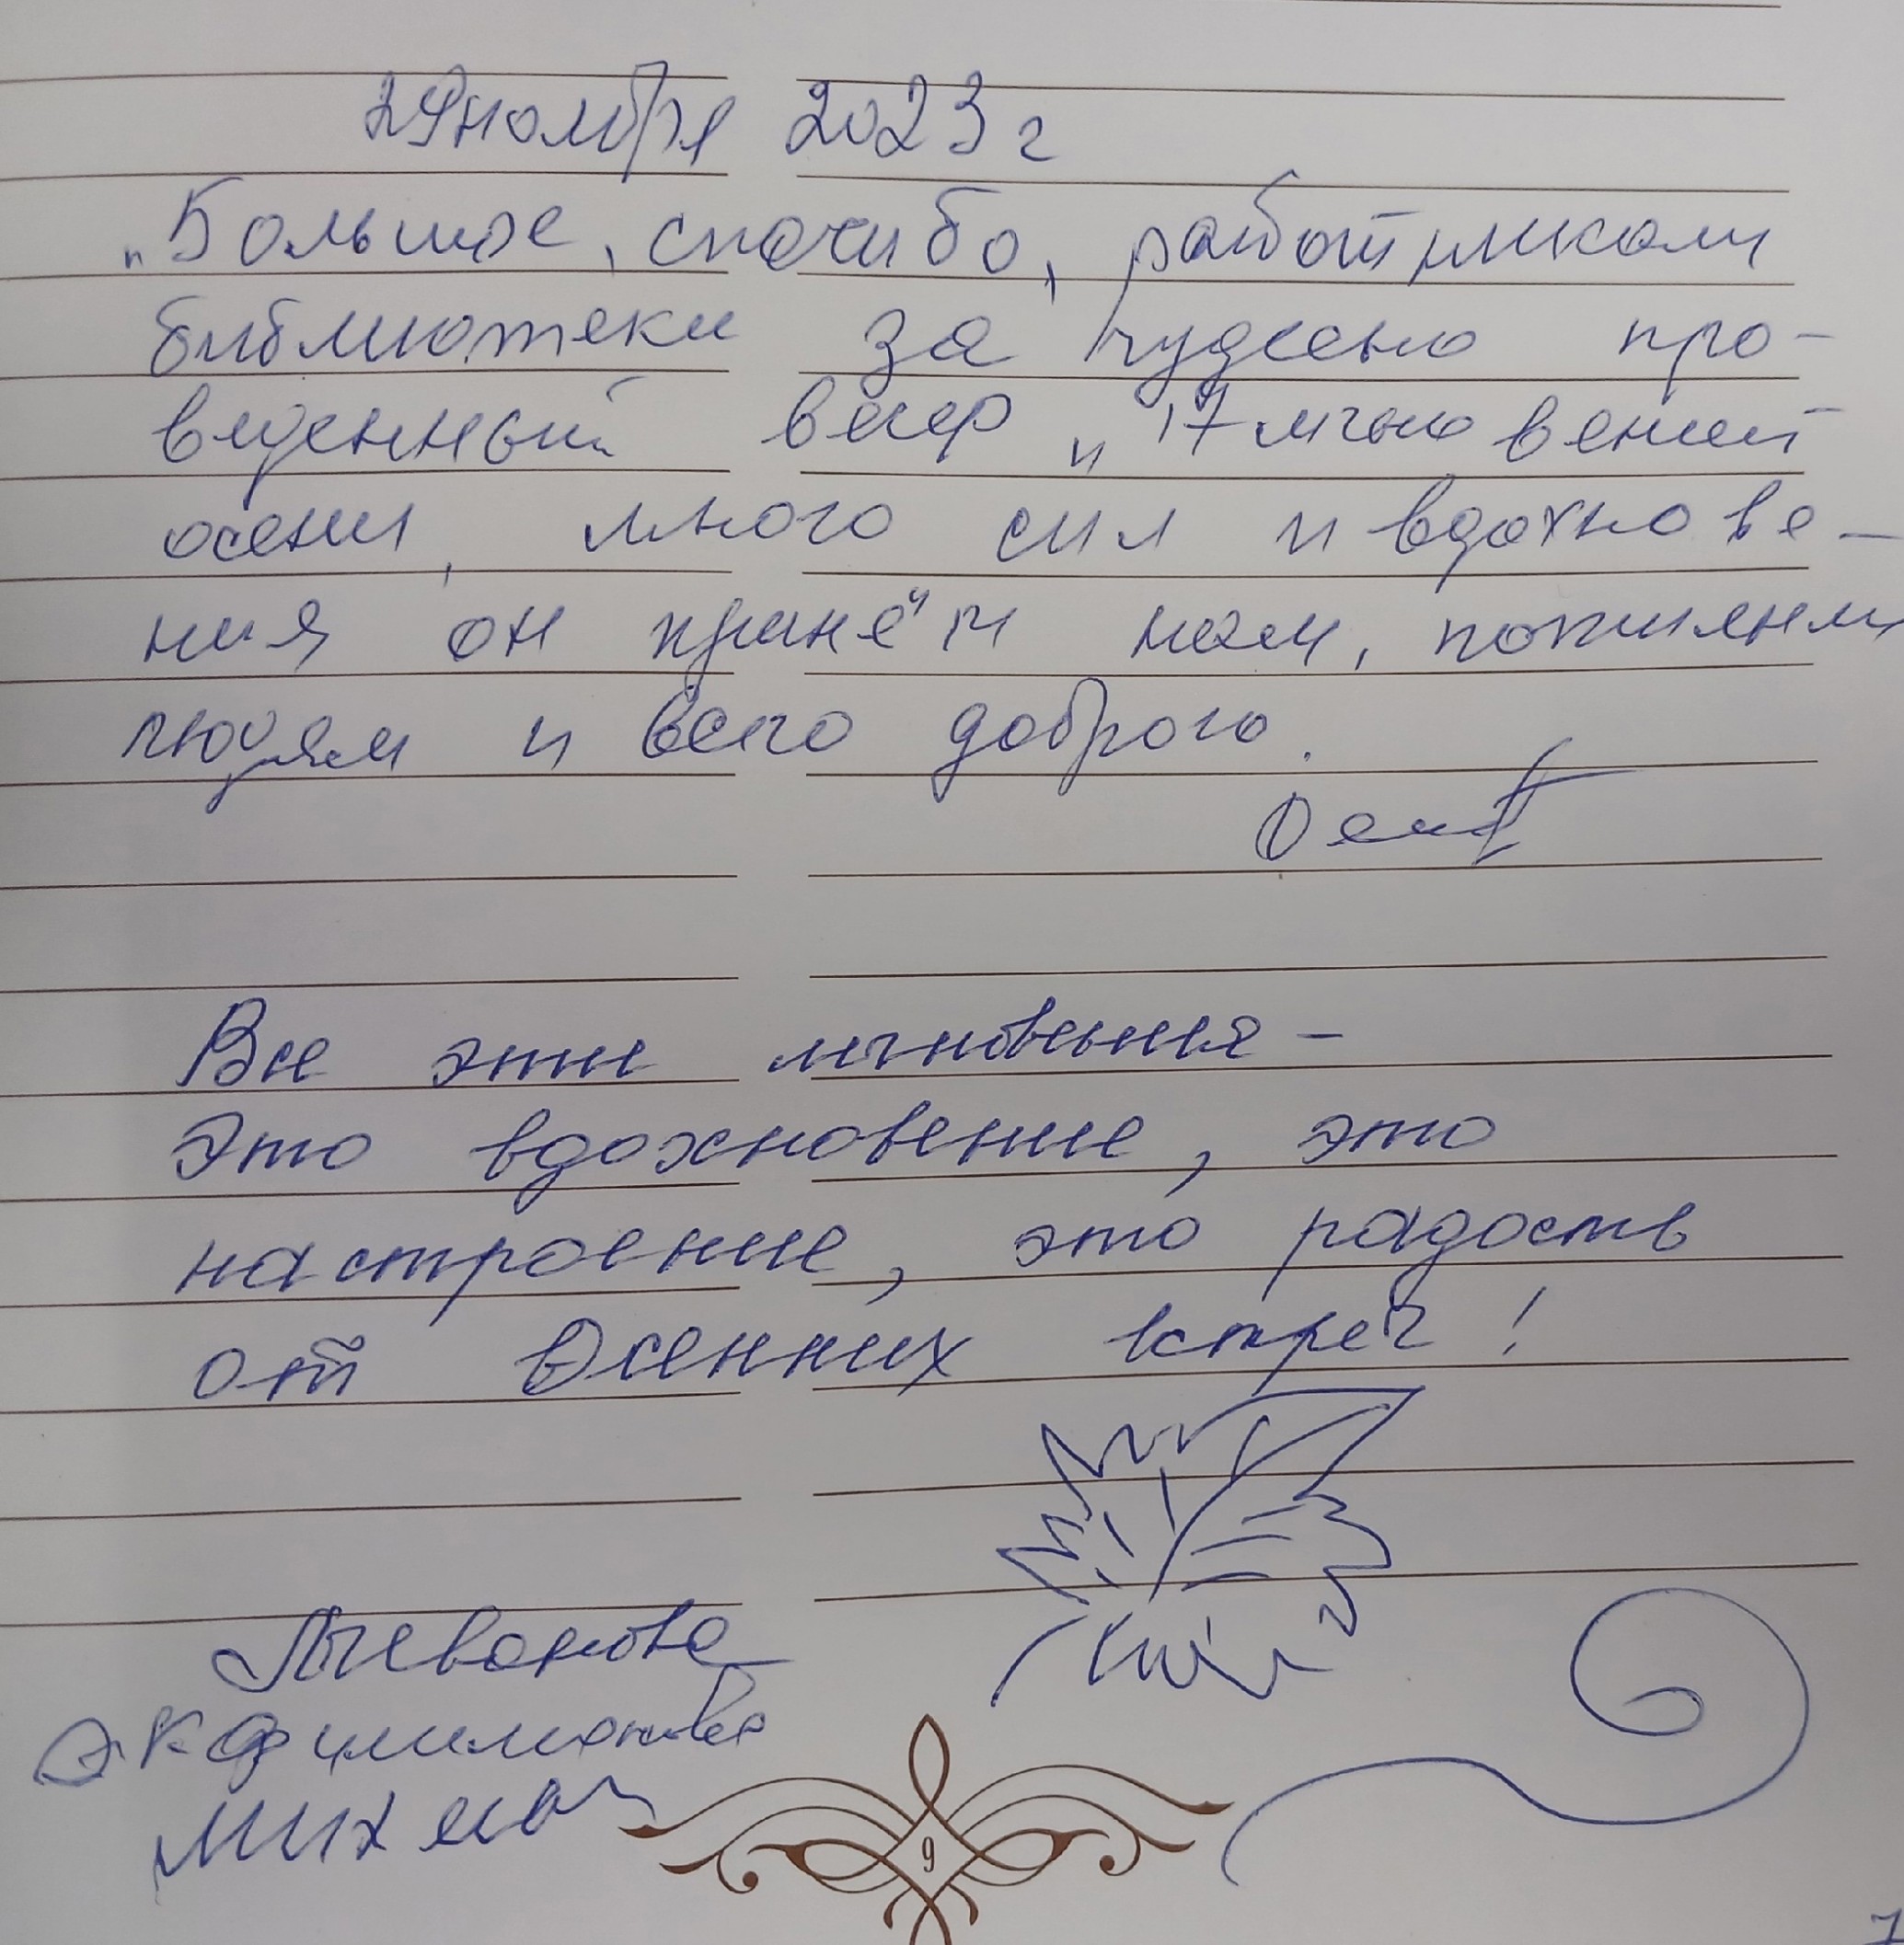 29 ноября 2023 г
„Большое, спасибо, работникам
библиотеки за чудесно про-
веденный вечер „17 мгновений
осени, много сил и вдохнове-
ния он принёт нам, пожилым
людям и всего доброго.
Все эти мгновенья –
Это вдохновение, это
настроение, это радость
от Осенних встреч!
9